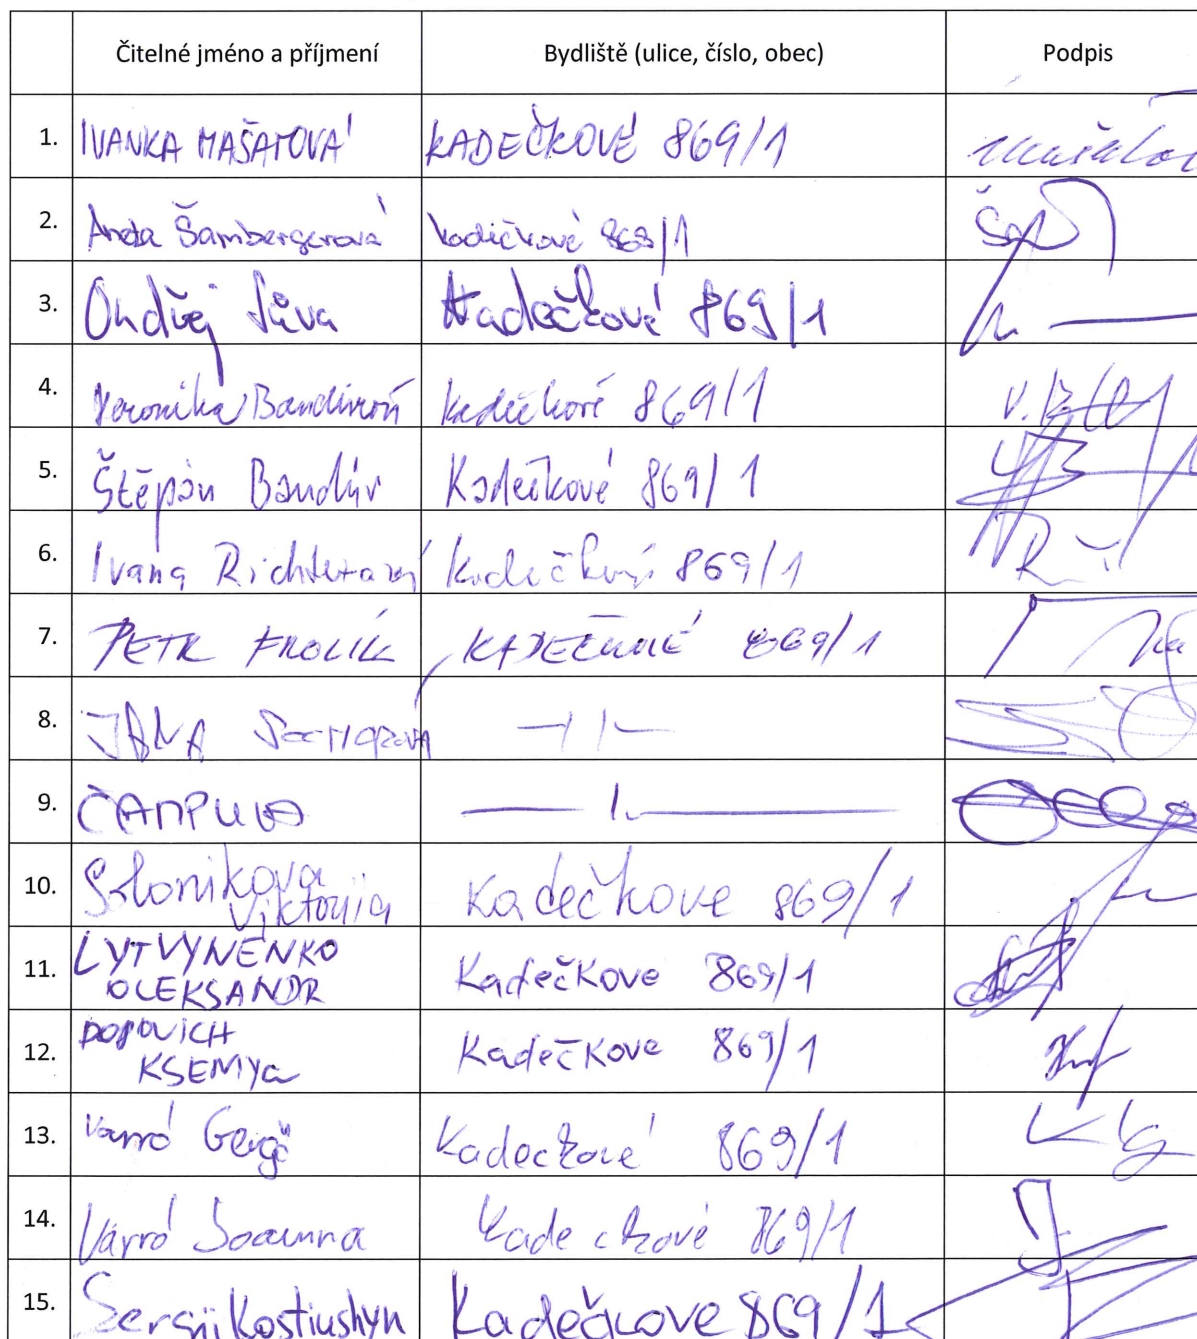 Čitelné jméno a příjmení Bydliště (ulice, číslo, obec) Podpis
1. IVANKA MAŠATOVÁ KADEČKOVÉ 869/1
2. Aneta Šambergerová Kadečkové 869/1
3. Ondřej Kadečkové 869/1
4. Veronika Bandírová Kadečkové 869/1
5. Štěpán Bandír Kadečkové 869/1
6. Ivana Richterová Kadečkové 869/1
7. PETR FROLÍK KADEČKOVÉ 869/1
8. JANA —//—
9. —//—
10. Solonikova Kadečkove 869/1
Viktoriia
11. LYTVYNENKO Kadečkove 869/1
OLEKSANDR
12. POPOVICH Kadečkove 869/1
KSENIYA
13. Varró Gergő Kadečkové 869/1
14. Varró Joanna Kadečkové 869/1
15. Sergii Kostiushyn Kadečkove 869/1